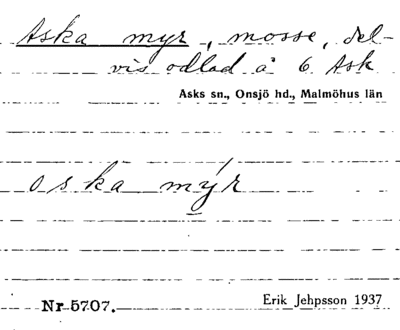 Aska myr, mosse, del-
vis odlad å 6 Ask
Asks sn., Onsjö hd., Malmöhus län
oska mýr
Nr 5707.
Erik Jehpsson 1937